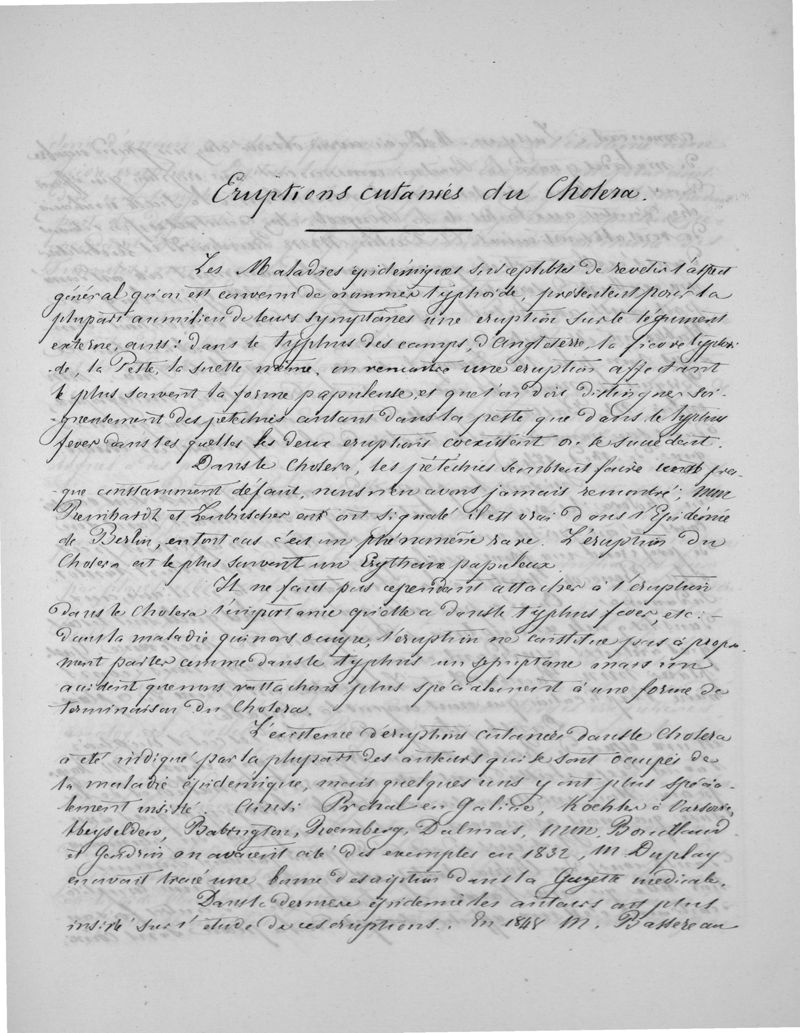 Eruptions cutanés du Cholera.
Les Maladies épidémiques susceptibles de revetir l'aspect
général qu'on est convenu de nommer typhoïde, présentent pour la
plupart au milieu de leurs symptômes une eruption sur le tégument
externe, ainsi: dans le typhus des camps, d'Angleterre, la fièvre typhoï-
-de, la Peste, la suette même, on rencontre une eruption affectant
le plus souvent la forme papuleuse, et que l'on doit distinguer soi-
-gneusement des pétechies autant dans la peste que dans le typhus
fever dans les quelles les deux eruptions coexistent ou se succèdent.
Dans le Cholera, les pétéchies semblent faire pres-
-que constamment défaut, nous n'en avons jamais rencontré; MM
Reinhardt et Leubuscher en ont signalé il est vrai dans l'Epidémie
de Berlin, en tout cas c'est un phénomène rare. L'éruption du
Cholera est le plus souvent un Erythème papuleux.
Il ne faut pas cependant attacher à l'éruption
dans le Cholera l'importance qu'elle a dans le typhus fever, etc: —
dans la maladie qui nous occupe, l'éruption ne constitue pas à propre-
ment parler comme dans le typhus un symptôme mais un
accident que nous rattachons plus spécialement à une forme de
terminaison du Cholera.
L'existence d'éruptions cutanées dans le Cholera
a été indiqué par la plupart des auteurs qui se sont occupés de
la maladie épidémique, mais quelques uns y ont plus spécia-
-lement insisté. Ainsi Prchal en Galicie, Koehler à Varsovie,
Heyselden, Babington, Romberg, Dalmas, MM. Bouillaud
et Gendrin en avaient cité des exemples en 1832, M. Duplay
en avait tracé une bonne description dans la Gazette médicale.
Dans la dernière épidémie les auteurs ont plus
insisté sur l'étude de ces éruptions. En 1848 M. Bassereau